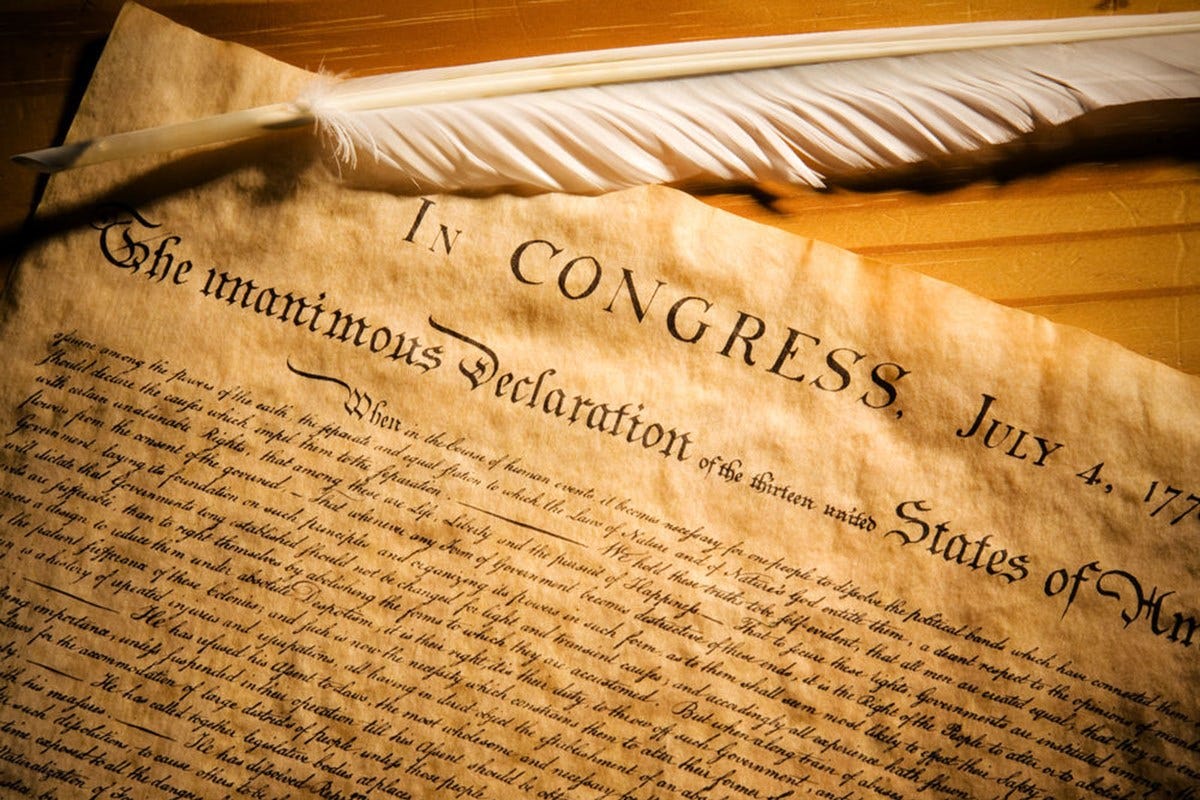 In CONGRESS, July 4, 177
The unanimous Declaration of the thirteen united States of Am
When in the Course of human events, it becomes necessary for one people to dissolve the political bands which have connected
assume among the powers of the earth, the separate and equal station to which the Laws of Nature and of Nature's God entitle them, a decent respect to the opinions of
should declare the causes which impel them to the separation. We hold these truths to be self-evident, that all men are created equal, that they are
with certain unalienable Rights, that among these are Life, Liberty and the pursuit of Happiness. — That to secure these rights, Governments are instituted among
from the consent of the governed, — That whenever any Form of Government becomes destructive of these ends, it is the Right of the People to alter or to abolish
Government, laying its foundation on such principles and organizing its powers in such form, as to them shall seem most likely to effect their Safety
will dictate that Governments long established should not be changed for light and transient causes; and accordingly all experience hath shewn
are sufferable, than to right themselves by abolishing the forms to which they are accustomed. But when a long train of abuses
a design to reduce them under absolute Despotism, it is their right, it is their duty, to throw off such Government, and
the patient sufferance of these Colonies; and such is now the necessity which constrains them to alter their former
is a history of repeated injuries and usurpations, all having in direct object the establishment of an
He has refused his Assent to Laws, the most wholesome and necessary for
importance, unless suspended in their operation till his Assent should be
Laws for the accommodation of large districts of people, unless those people
He has called together legislative bodies at places
his measures. He has dissolved
dispositions to cause others to be
exposed to all the dangers